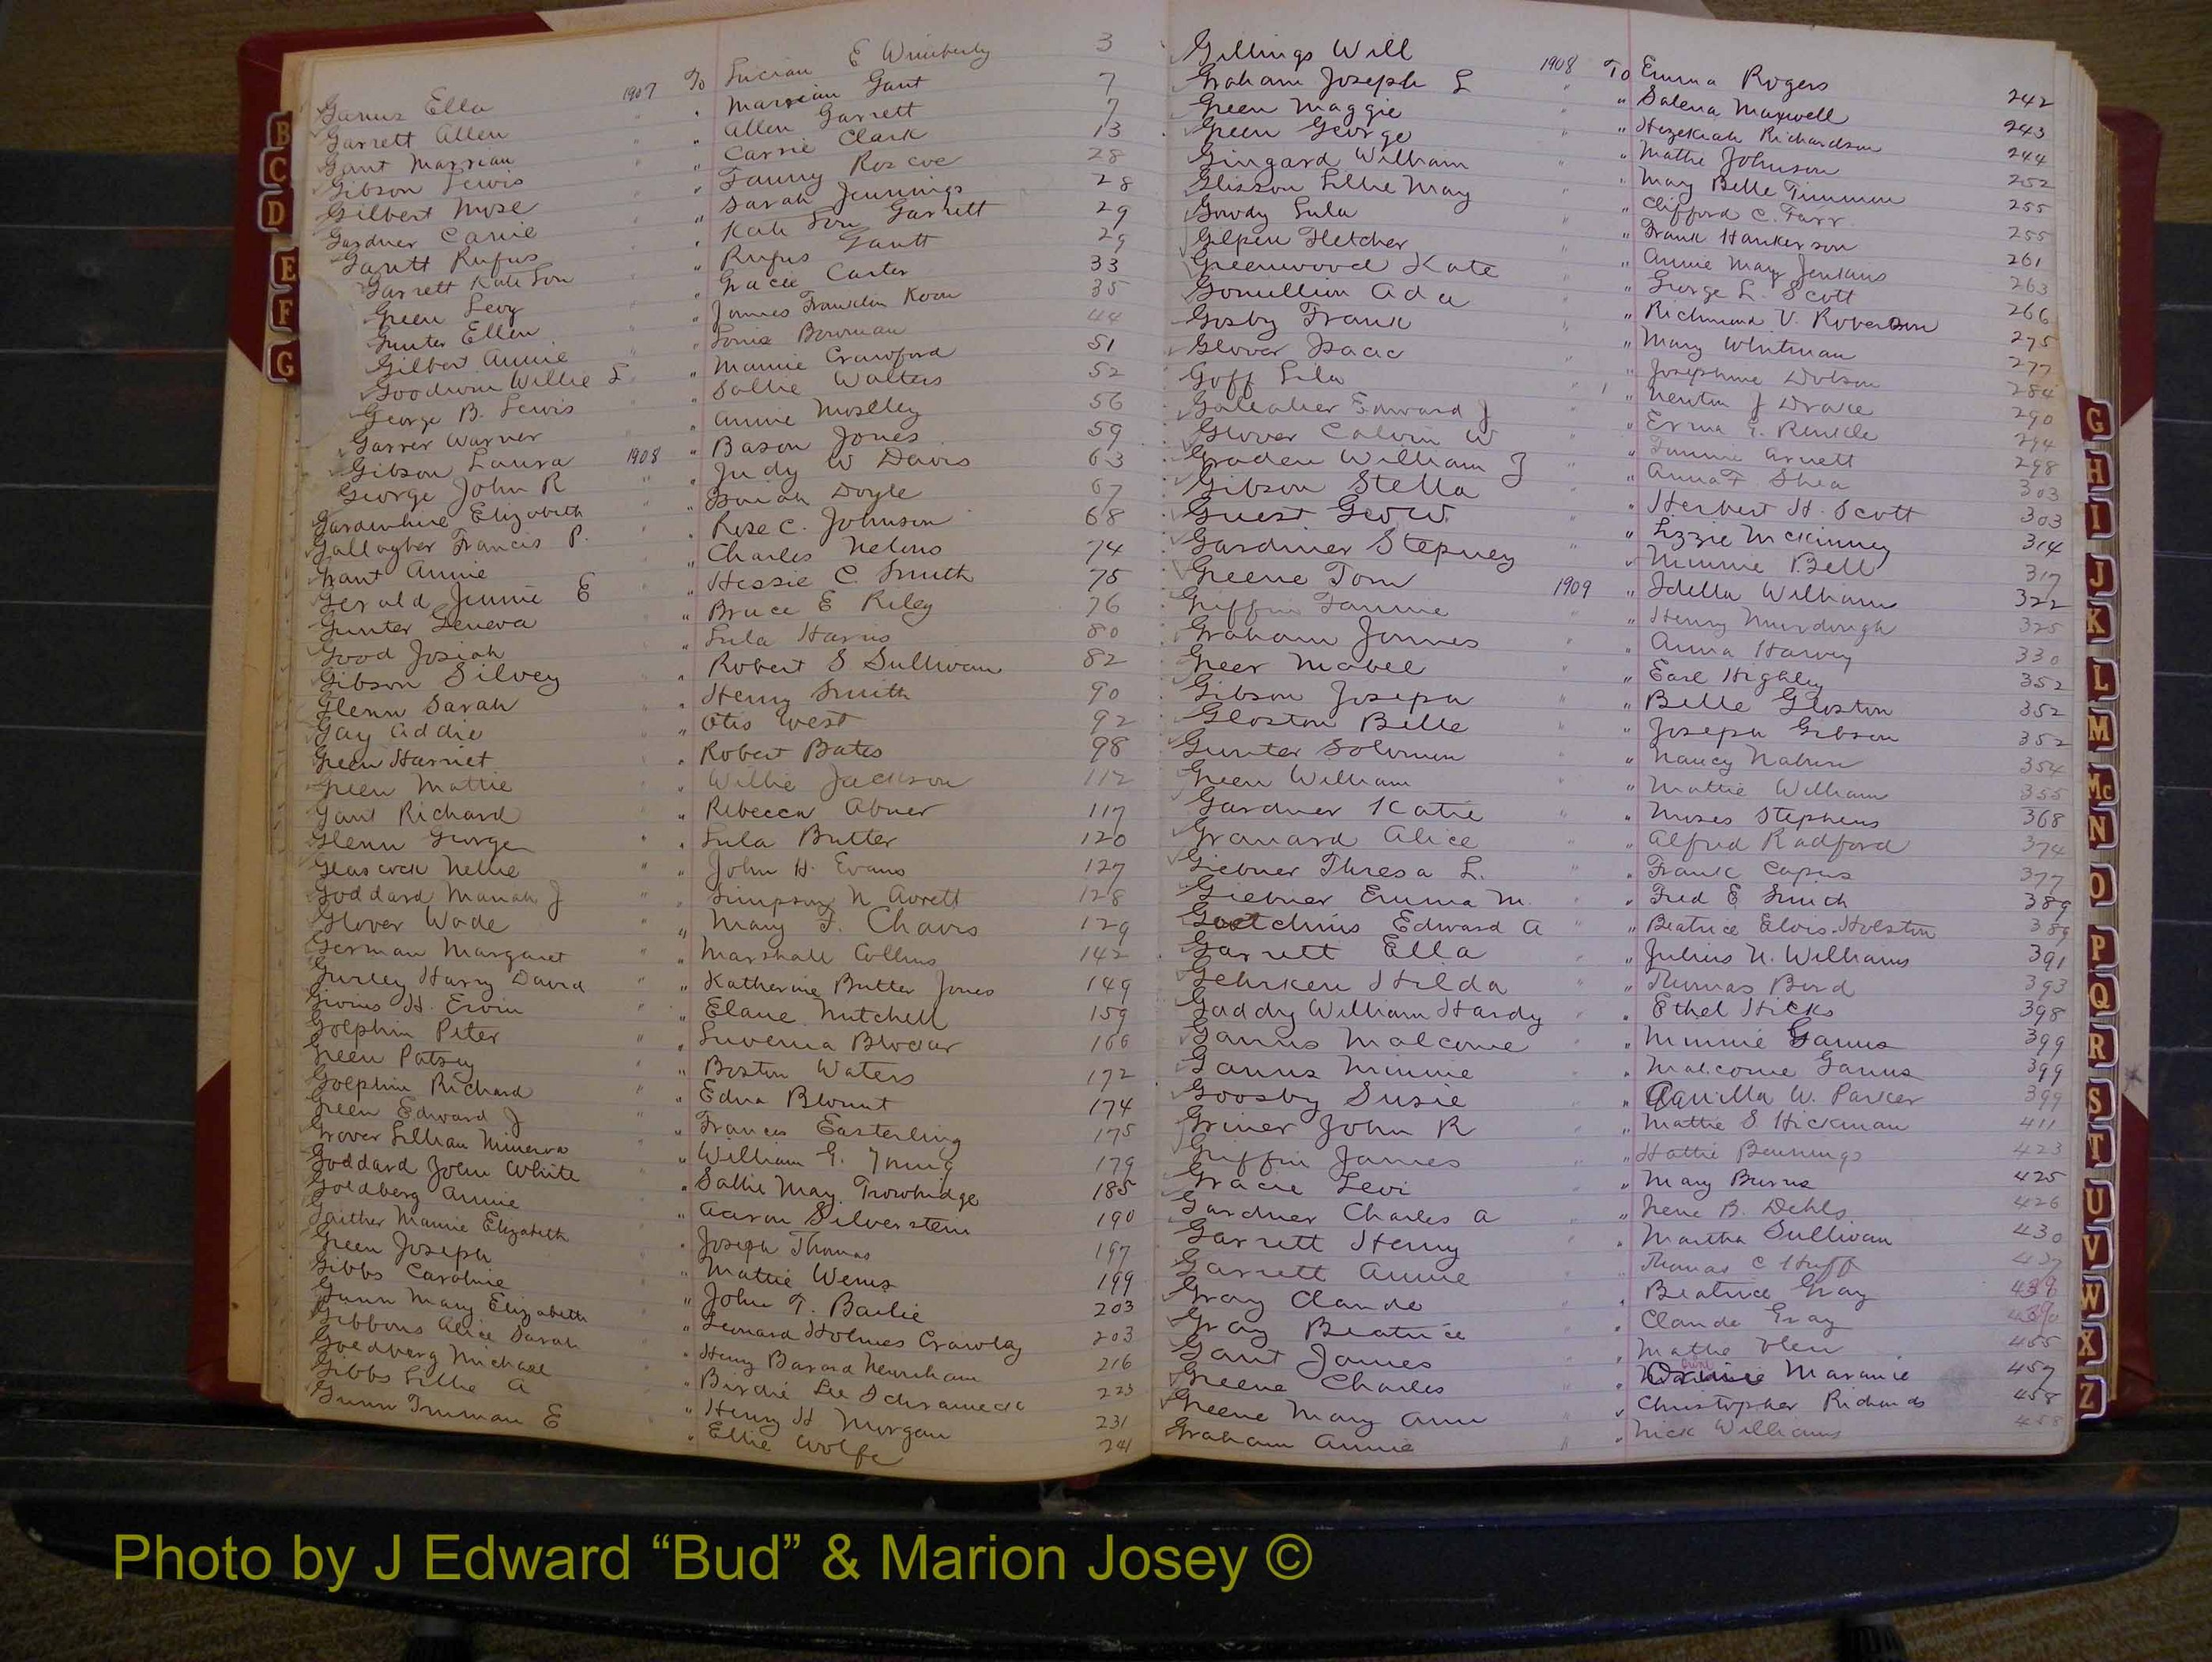 Ganus Ella 1907 To Lucian E Wimberly 3
Garrett Allen " " Marsian Gant 7
Gant Marsian " " Allen Garrett 7
Gibson Lewis " " Carrie Clark 13
Gilbert Mose " " Fanny Roscoe 28
Gardner Carrie " " Sarah Jennings 28
Gantt Rufus " " Kate Lou Garrett 29
Garrett Kate Lou " " Rufus Gantt 29
Green Levy " " Gracie Carter 33
Gunter Ellen " " James Franklin Koon 35
Gilbert Annie " " Bowman 44
Goodwin Willie L " " Mamie Crawford 51
George B. Lewis " " Sallie Walters 52
Garrer Warner " " Annie Moseley 56
Gibson Laura 1908 " Bason Jones 59
George John R " " Judy W Davis 63
Gardenhire Elizabeth " " Doyle 67
Gallagher Francis P. " " Rose C. Johnson 68
Grant Annie " " Charles Nelons 74
Gerald Jennie E " " Hessie C. Smith 75
Gunter Geneva " " Bruce E Riley 76
Good Josiah " " Lula Harris 80
Gibson Silvey " " Robert S Sullivan 82
Glenn Sarah " " Henry Smith 90
Gay Addie " " Otis West 92
Green Harriet " " Robert Bates 98
Green Mattie " " Willie Jackson 112
Gant Richard " " Rebecca Abner 117
Glenn George " " Lula Butter 120
Glascock Nellie " " John H. Evans 127
Goddard Mariah J " " Simpson N Avrett 128
Glover Wade " " Mary F. Chavis 129
German Margaret " " Marshall Collins 142
Gurley Harry David " " Katherine Butter Jones 149
Givins H. Ervin " " Elane Mitchell 159
Golphin Peter " " Luvenia Blocker 166
Green Patsey " " Boston Waters 172
Golphin Richard " " Edna Blount 174
Green Edward J " " Frances Easterling 175
Grover Lillian Minerva " " William G. Young 179
Goddard John White " " Sallie May Trowbridge 185
Goldberg Annie " " Aaron Silverstein 190
Gaither Mamie Elizabeth " " Joseph Thomas 197
Green Joseph " " Mattie Wems 199
Gibbs Caroline " " John T. Bailie 203
Gunn Mary Elizabeth " " Leonard Holmes Crawley 203
Gibbons Alice Sarah " " Henry Barard Newnham 216
Goldberg Michael " " Birdie Lee Schrameck 223
Gibbs Lillie A " " Henry H Morgan 231
Gunn Truman E " " Ellie Wolfe 241
Gillings Will 1908 To Emma Rogers 242
Graham Joseph L " " Salena Maxwell 243
Green Maggie " " Hezekiah Richardson 244
Green George " " Mattie Johnson 252
Gingard William " " May Belle Timmons 255
Glisson Lillie May " " Clifford C. Farr 255
Gowdy Lula " " Frank Hankerson 261
Gilpen Fletcher " " Annie May Jenkins 263
Greenwood Kate " " George L. Scott 266
Gomillion Ada " " Richmond V. Roberson 275
Gosby Frank " " Mary Whitman 277
Glover Isaac " " Josephine Dotson 284
Goff Lila " " Newton J Drace 290
Galeaher Edward J " " Erma E. Runkle 294
Glover Calvin W " " Fannie Arnett 298
Graden William J " " Anna F Shea 303
Gibson Stella " " Herbert H. Scott 303
Guest Geo W. " " Lizzie McKinney 314
Gardiner Stepney " " Minnie Bell 317
Greene Tom 1909 " Idella Williams 322
Griffin Fannie " " Henry Murdough 325
Graham James " " Anna Harvey 330
Greer Mabel " " Earl Highley 352
Gibson Joseph " " Belle Gloston 352
Gloston Belle " " Joseph Gibson 352
Gunter Solomon " " Nancy Nabrn 354
Green William " " Mattie William 355
Gardner Katie " " Moses Stephens 368
Granard Alice " " Alfred Radford 374
Giebner Thresa L. " " Frank Capus 377
Giebner Emma M. " " Fred E Smith 389
Goetchius Edward A " " Beatrice Elois Holston 389
Garrett Ella " " Julius N. Williams 391
Gehrken Hilda " " Thomas Bird 393
Gaddy William Hardy " " Ethel Hicks 398
Ganus Malcome " " Minnie Ganus 399
Ganus Minnie " " Malcome Ganus 399
Goosby Susie " " Aquilla W. Parker 399
Griner John R " " Mattie S Hickman 411
Griffin James " " Hattie Bennings 423
Gracie Levi " " Mary Burns 425
Gardner Charles A " " Irene B. Dehls 426
Garrett Henry " " Martha Sullivan 430
Garrett Annie " " Thomas C Huff 437
Gray Claude " " Beatrice Gray 439
Gray Beatrice " " Claude Gray
Gant James " " Mattie Glen 455
Greene Charles " " Maranie 457
Greene Mary Ann " " Christopher Richards 458
Graham Annie " " Nick Williams 458
B
C
D
E
F
G
G
H
I
J
K
L
M
Mc
N
O
P
Q
R
S
T
U
V
W
X
Z
Photo by J Edward “Bud” & Marion Josey ©